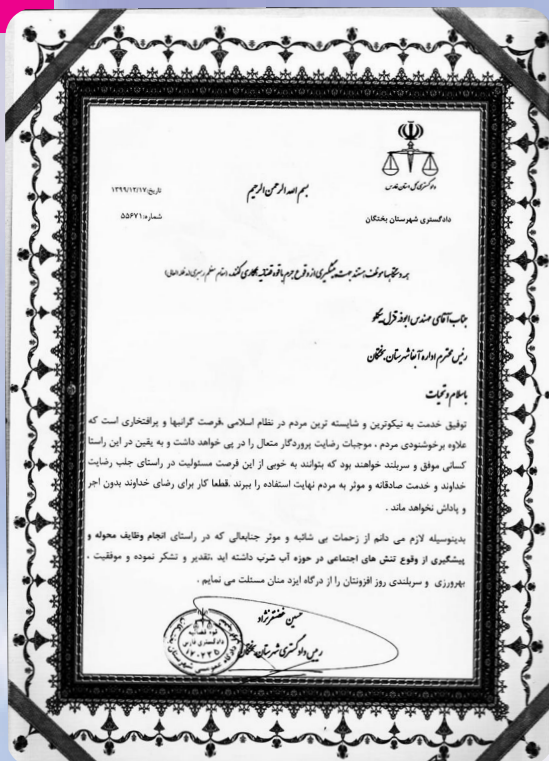 بسم الله الرحمن الرحیم
دادگستری کل استان فارس
دادگستری شهرستان بختگان
تاریخ:۱۳۹۹/۱۲/۱۷
شماره:۵۵۶۷۱
همه دستگاهها موظف هستند جهت پیشگیری از وقوع جرم با قوه قضائیه همکاری کنند. (مقام معظم رهبری مدظله العالی)
جناب آقای مهندس ابوذر قزل
رئیس محترم اداره آبفا شهرستان بختگان
باسلام و تحیات
توفیق خدمت به نیکوترین و شایسته ترین مردم در نظام اسلامی ،فرصت گرانبها و پرافتخاری است که
علاوه برخوشنودی مردم ، موجبات رضایت پروردگار متعال را در پی خواهد داشت و به یقین در این راستا
کسانی موفق و سربلند خواهند بود که بتوانند به خوبی از این فرصت مسئولیت در راستای جلب رضایت
خداوند و خدمت صادقانه و موثر به مردم نهایت استفاده را ببرند .قطعا کار برای رضای خداوند بدون اجر
و پاداش نخواهد ماند .
بدینوسیله لازم می دانم از زحمات بی شائبه و موثر جنابعالی که در راستای انجام وظایف محوله و
پیشگیری از وقوع تنش های اجتماعی در حوزه آب شرب داشته اید ،تقدیر و تشکر نموده و موفقیت ،
بهروزی و سربلندی روز افزونتان را از درگاه ایزد منان مسئلت می نمایم .
حسین غضنفرنژاد
رییس دادگستری شهرستان بختگان
قوه قضائیه
دادگستری فارس